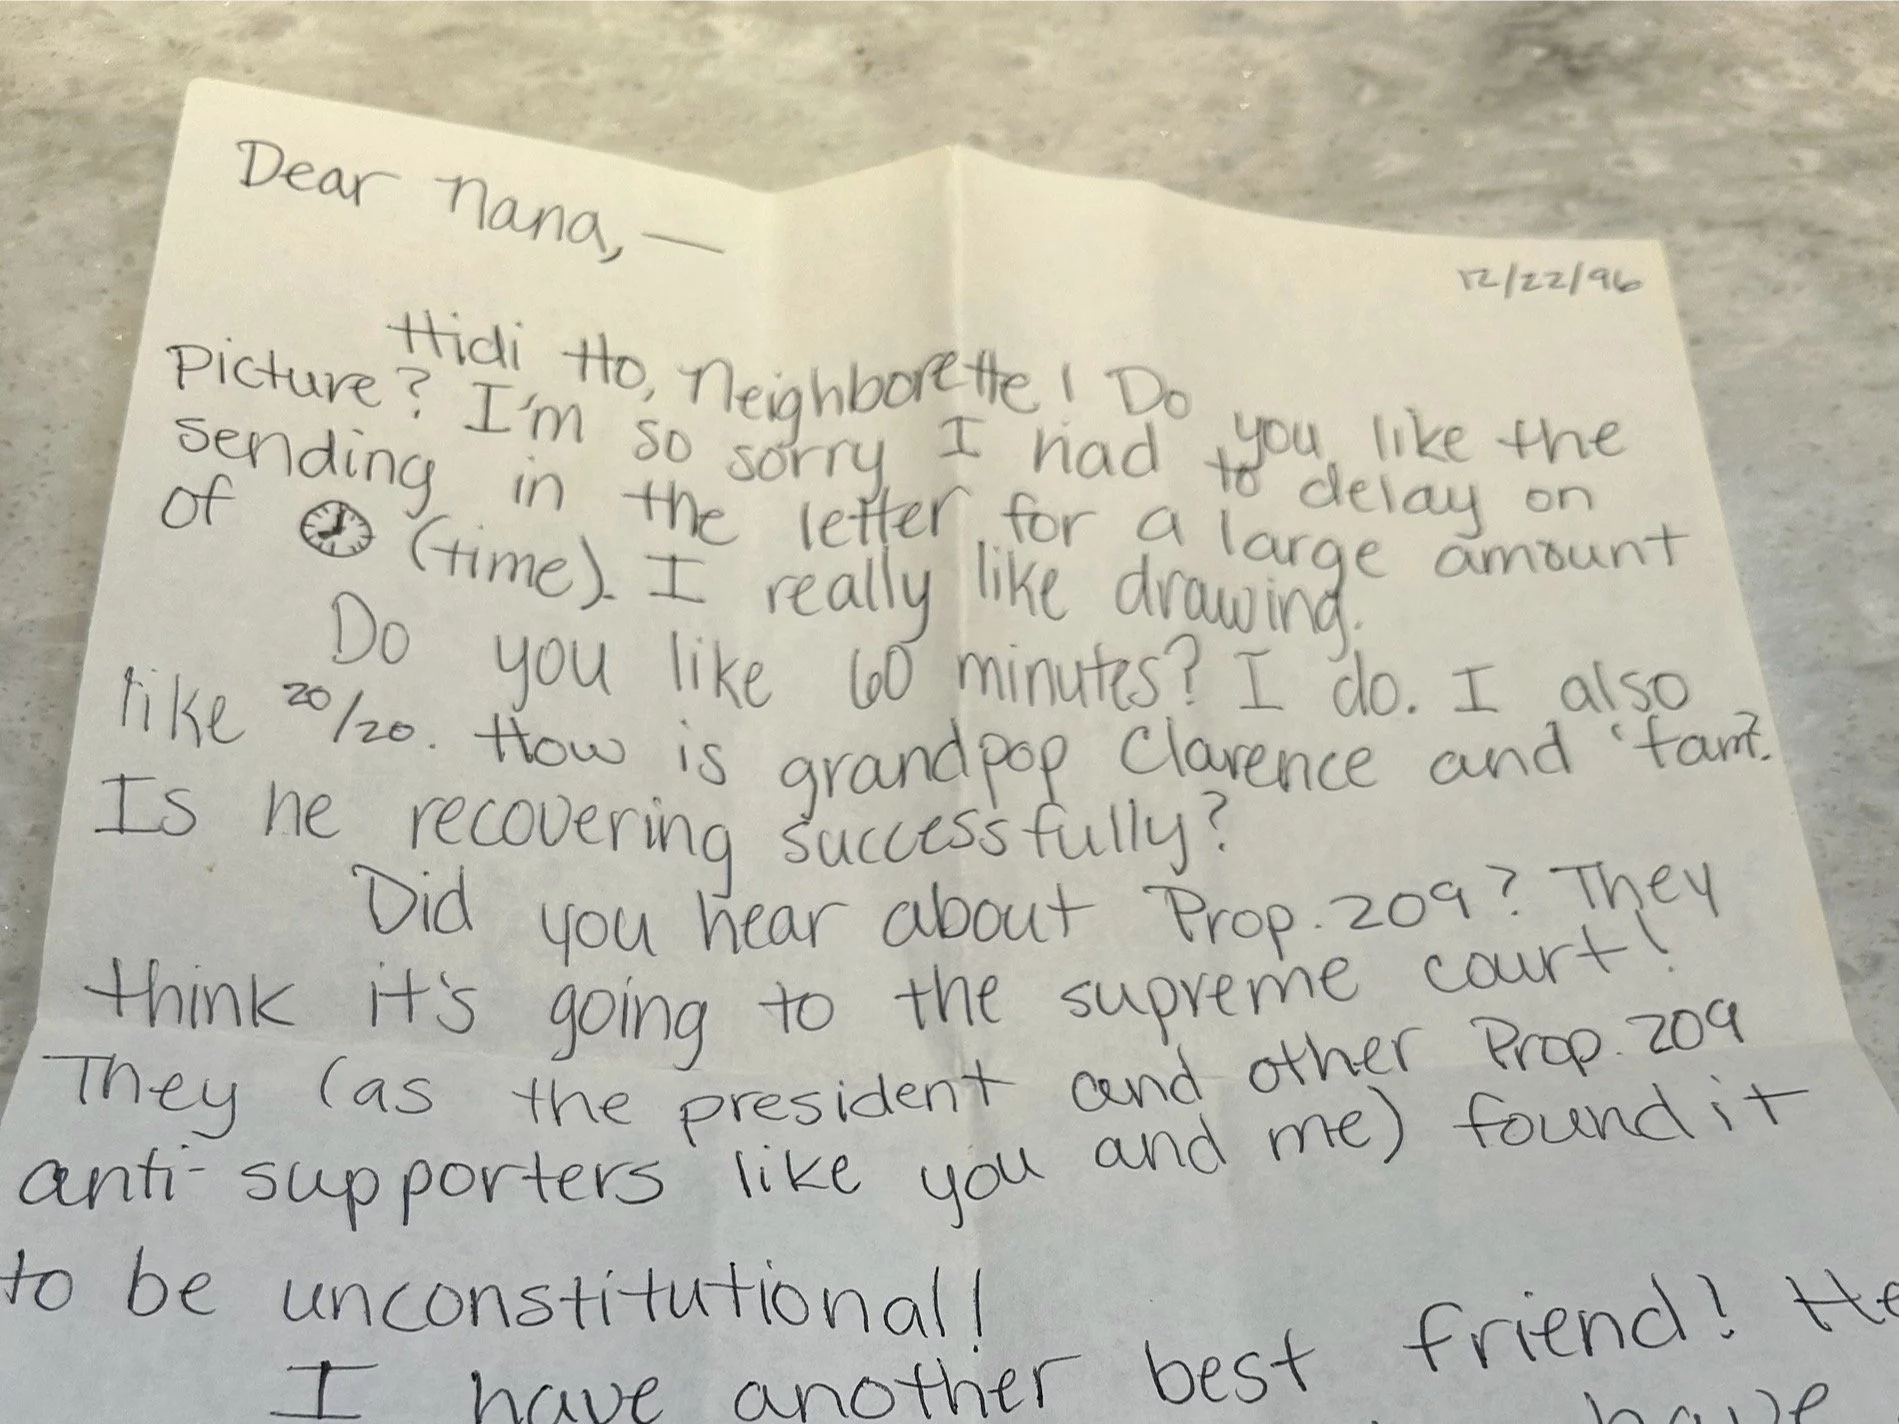 Dear Nana, —
12/22/96
Hidi Ho, Neighborette! Do you like the
Picture? I'm so sorry I had to delay on
sending in the letter for a large amount
of (time). I really like drawing.
Do you like 60 minutes? I do. I also
like 20/20. How is grandpop Clarence and 'fam?
Is he recovering successfully?
Did you hear about Prop. 209? They
think it's going to the supreme court!
They (as the president and other Prop. 209
anti-supporters like you and me) found it
to be unconstitutional!
I have another best friend! He
have